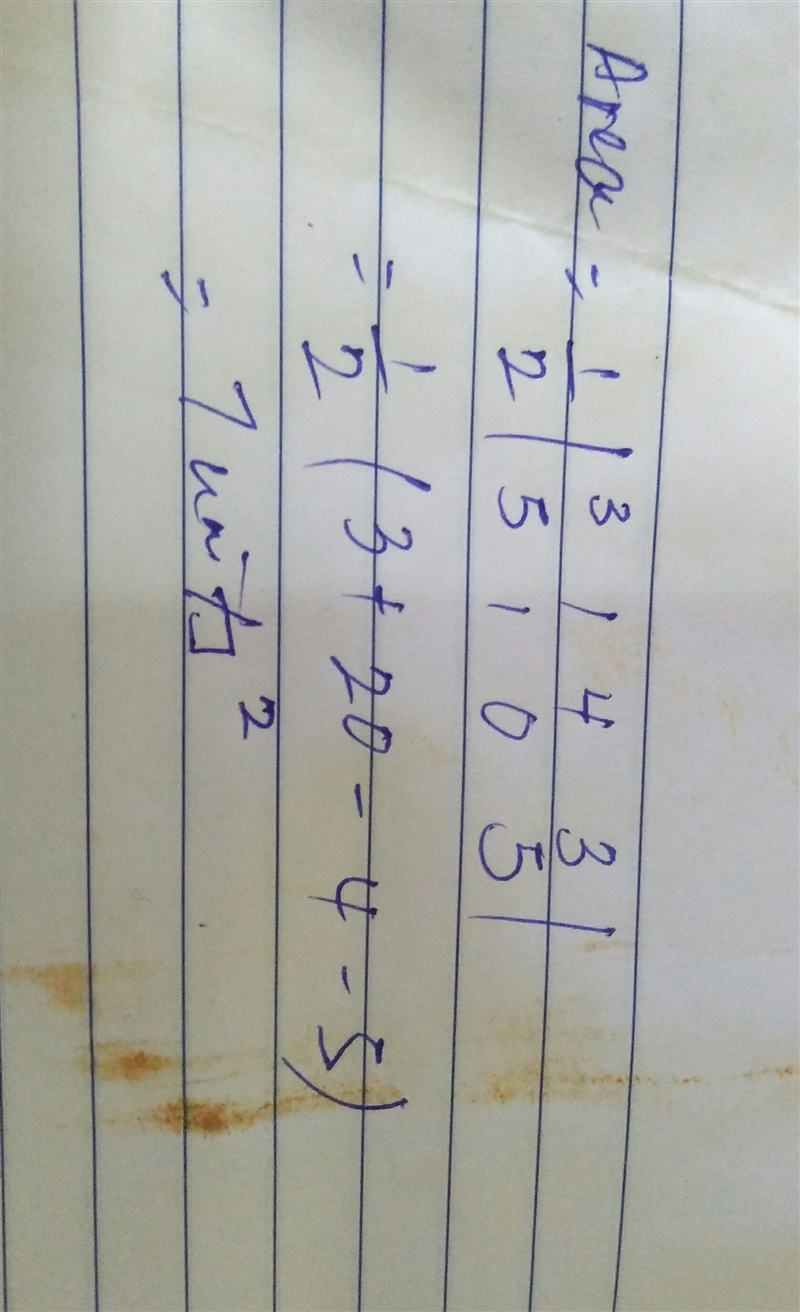 Area = 1/2 | 3 1 4 3 |
5 1 0 5
= 1/2 (3 + 20 - 4 - 5)
= 7 units²